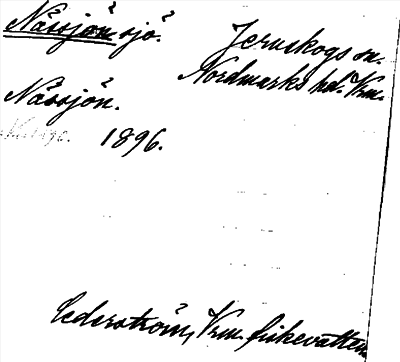 Nässjön sjö.
Jernskogs sn.
Nordmarks hd. Vrm.
Nässjön.
1896.
Cederström, Vrm. fiskevatten